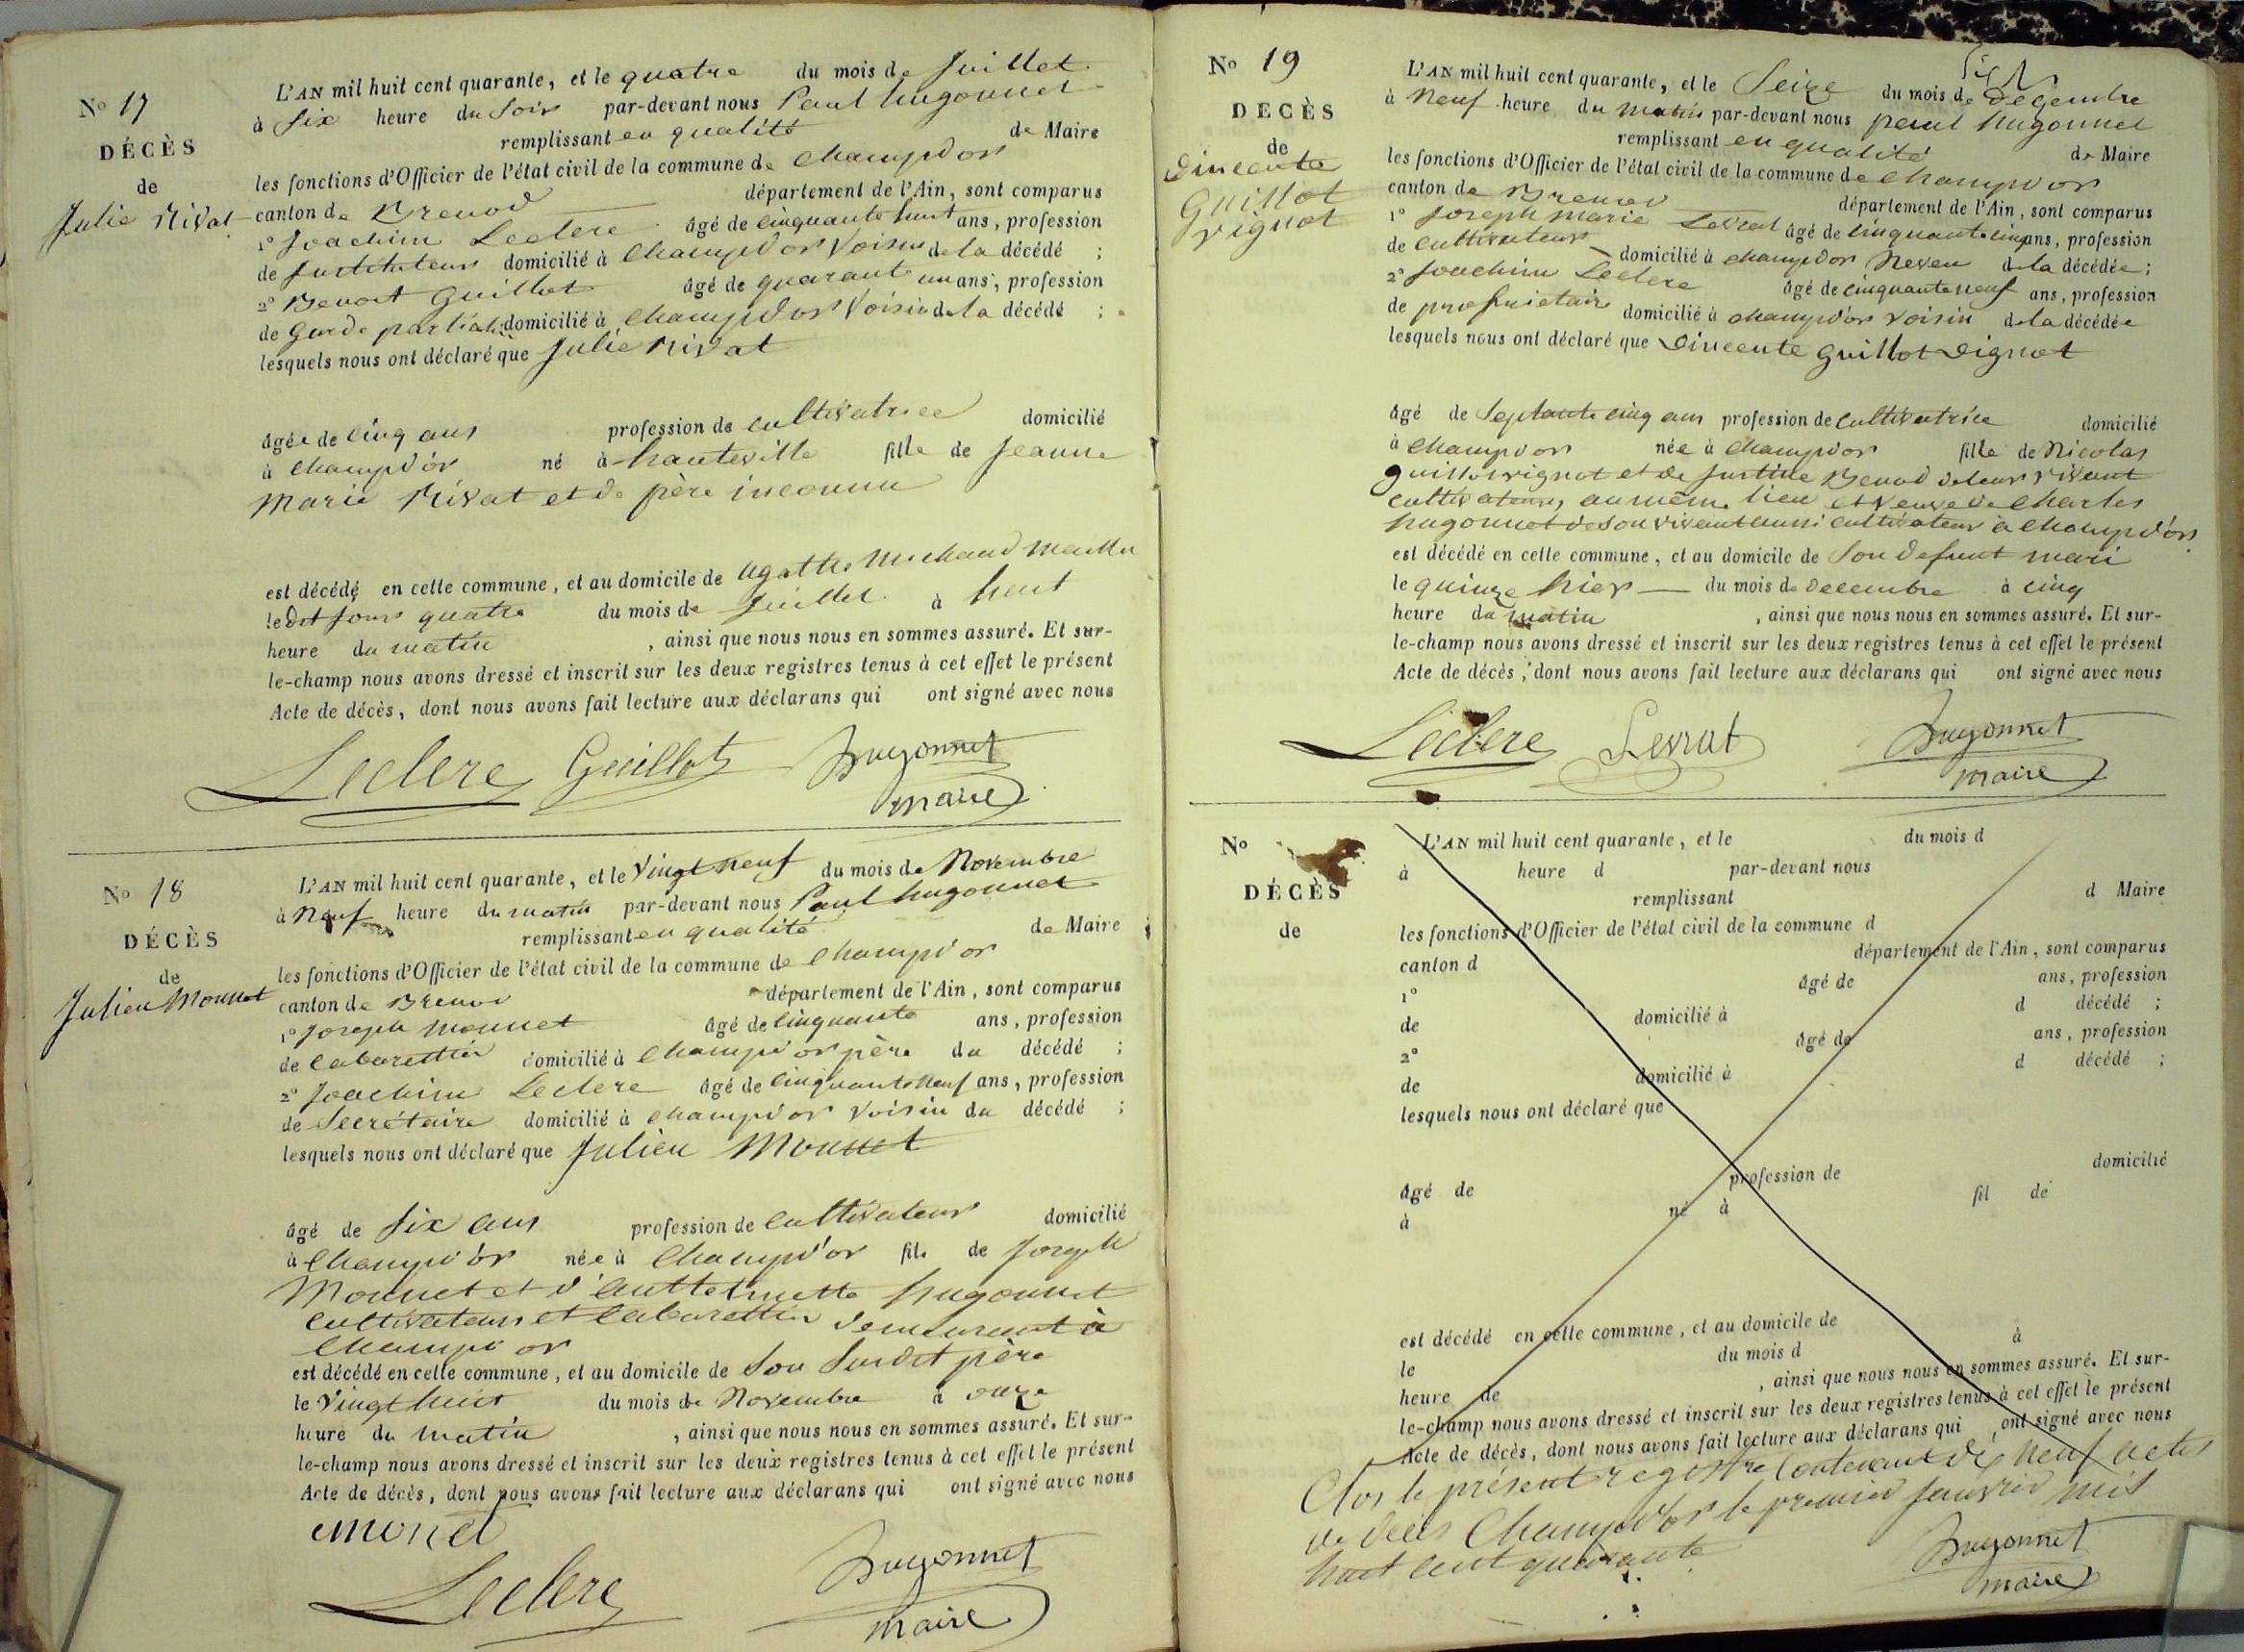 N° 17
DÉCÈS
de
Julie Nivat
L'AN mil huit cent quarante, et le quatre du mois de Juillet
à Six heure du Soir par-devant nous Paul hugonnet
remplissant en qualité de Maire
les fonctions d'Officier de l'état civil de la commune de Champdor
canton de Brenod département de l'Ain, sont comparus
1° Joachim Leclerc âgé de Cinquante huit ans, profession
de Instituteur domicilié à Champdor Voisin de la décédé ;
2° Benoit Guillot âgé de quarante un ans, profession
de Garde domicilié à Champdor Voisin de la décédé ;
lesquels nous ont déclaré que Julie Nivat
âgée de Cinq ans profession de cultivatrice domicilié
à Champdor né à hauteville fille de Jeanne
Marie Nivat et de père inconnu
est décédé en cette commune, et au domicile de Agathe Michaud
le dit jour quatre du mois de Juillet à huit
heure du matin , ainsi que nous nous en sommes assuré. Et sur-
le-champ nous avons dressé et inscrit sur les deux registres tenus à cet effet le présent
Acte de décès, dont nous avons fait lecture aux déclarans qui ont signé avec nous
Leclerc Guillot hugonnet
maire
N° 18
DÉCÈS
de
Julien Monnet
L'AN mil huit cent quarante, et le Vingt neuf du mois de Novembre
à Neuf heure du matin par-devant nous Paul hugonnet
remplissant en qualité de Maire
les fonctions d'Officier de l'état civil de la commune de Champdor
canton de Brenod département de l'Ain, sont comparus
1° Joseph monnet âgé de Cinquante ans, profession
de Cabarettier domicilié à Champdor père du décédé ;
2° Joachim Leclerc âgé de Cinquante neuf ans, profession
de Secrétaire domicilié à champdor Voisin du décédé ;
lesquels nous ont déclaré que Julien Monnet
âgé de Six ans profession de Cultivateur domicilié
à Champd'or née à Champd'or fils de Joseph
Monnet et d' hugonnet
Cultivateur et Cabarettier demeurant à
Champdor
est décédé en cette commune, et au domicile de Son Susdit père
le Vingt huit du mois de Novembre à onze
heure du matin , ainsi que nous nous en sommes assuré. Et sur-
le-champ nous avons dressé et inscrit sur les deux registres tenus à cet effet le présent
Acte de décès, dont nous avons fait lecture aux déclarans qui ont signé avec nous
monet
Leclerc hugonnet
maire
N° 19
DÉCÈS
de
Vincente
Guillot
Vignot
L'AN mil huit cent quarante, et le Seize du mois de Decembre
à Neuf heure du matin par-devant nous paul hugonnet
remplissant en qualité de Maire
les fonctions d'Officier de l'état civil de la commune de Champdor
canton de Brenod département de l'Ain, sont comparus
1° Joseph Marie Levrat âgé de Cinquante cinq ans, profession
de Cultivateur domicilié à champdor Neveu de la décédée ;
2° Joachim Leclerc âgé de cinquante neuf ans, profession
de proprietaire domicilié à champd'or voisin de la décédée
lesquels nous ont déclaré que Vincente Guillot Vignot
âgé de Septante cinq ans profession de Cultivatrice domicilié
à Champdor née à Champdor fille de Nicolas
guillot vignot et de Justine Benod de leur vivant
cultivateurs au même lieu et veuve de Charles
hugonnet de son vivant aussi cultivateur à Champd'or
est décédé en cette commune, et au domicile de Son defunt mari
le quinze hier du mois de decembre à cinq
heure du matin , ainsi que nous nous en sommes assuré. Et sur-
le-champ nous avons dressé et inscrit sur les deux registres tenus à cet effet le présent
Acte de décès, dont nous avons fait lecture aux déclarans qui ont signé avec nous
Leclerc Levrat hugonnet
maire
N°
DÉCÈS
de
L'AN mil huit cent quarante, et le du mois d
à heure d par-devant nous
remplissant d Maire
les fonctions d'Officier de l'état civil de la commune d
canton d département de l'Ain, sont comparus
1° âgé de ans, profession
de domicilié à d décédé ;
2° âgé de ans, profession
de domicilié à d décédé ;
lesquels nous ont déclaré que
âgé de profession de domicilié
à né à fil de
est décédé en cette commune, et au domicile de
le du mois d à
heure de , ainsi que nous nous en sommes assuré. Et sur-
le-champ nous avons dressé et inscrit sur les deux registres tenus à cet effet le présent
Acte de décès, dont nous avons fait lecture aux déclarans qui ont signé avec nous
Clos le présent registre Contenant dix Neuf actes
de décès Champd'or le premier Janvier mil
huit cent quarante
hugonnet
maire